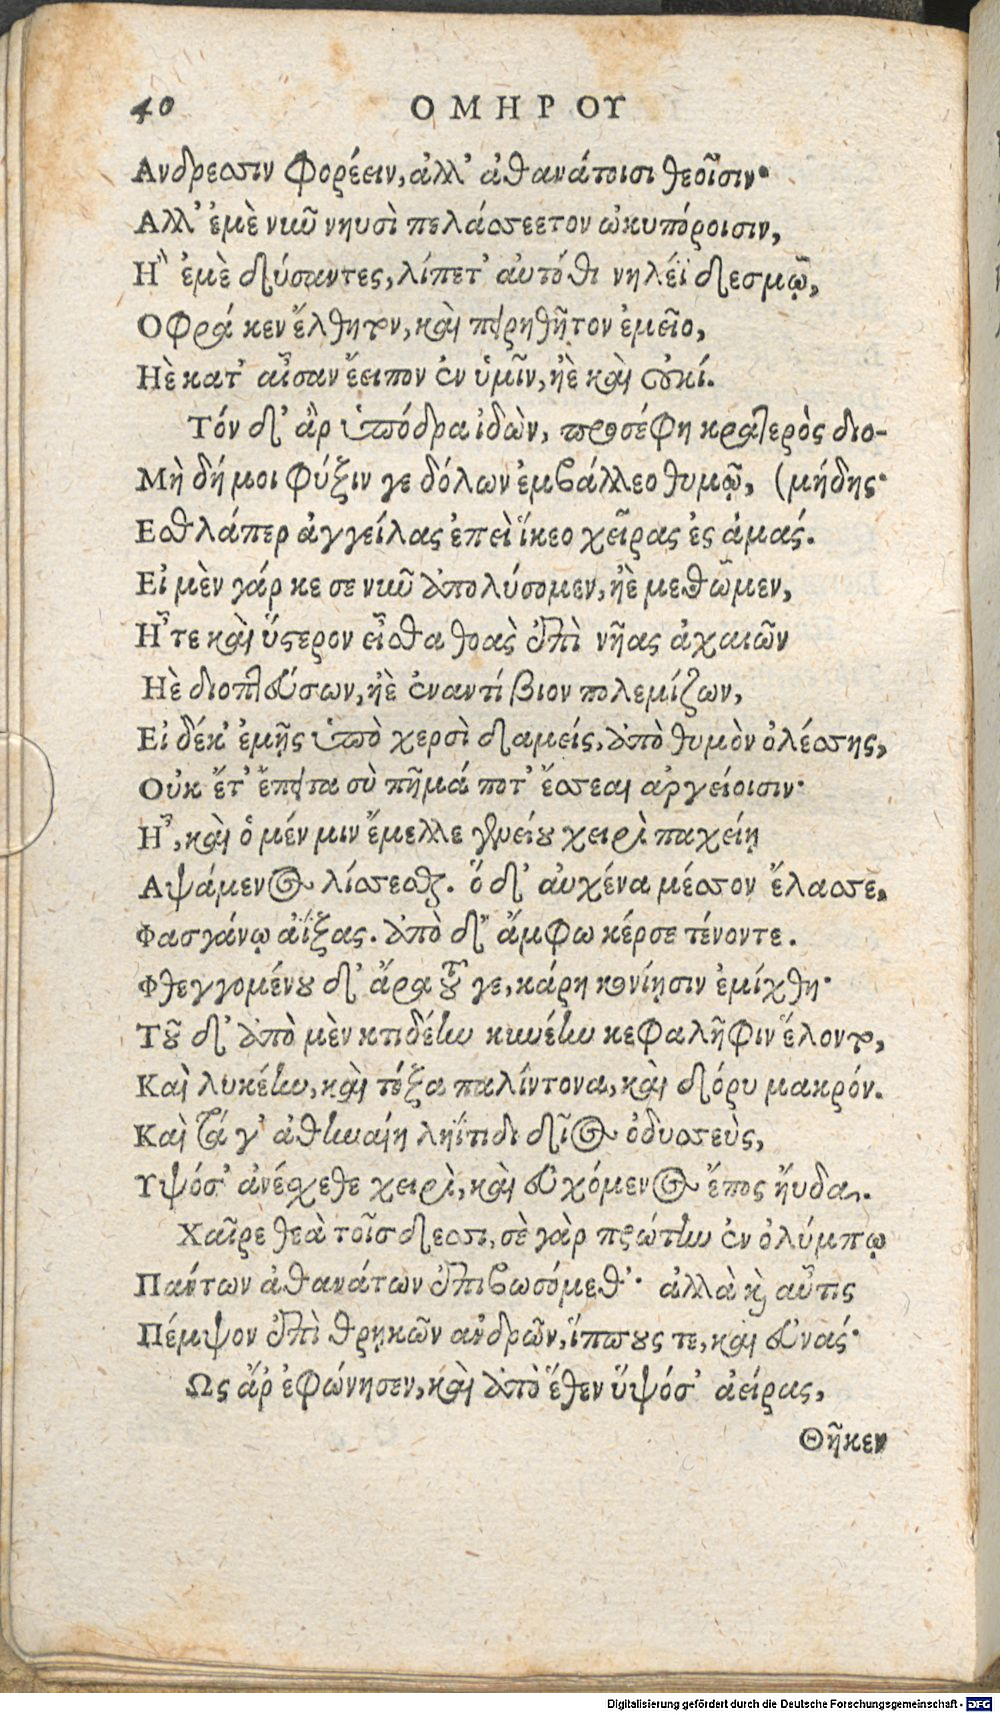 40 ΟΜΗΡΟΥ
Ανδρεσσιν φορέειν, ἀλλ' ἀθανάτοισι θεοῖσιν·
Αλλ' ἐμὲ νῦν νηυσὶ πελάσσετον ὠκυπόροισιν,
Η" ἐμὲ δήσαντες, λίπετ' αὐτόθι νηλέϊ δεσμῷ,
Οφρά κεν ἔλθητον, καὶ πειρηθῆτον ἐμεῖο,
Ηὲ κατ' αἶσαν ἔειπον ἐν ὑμῖν, ἠὲ καὶ οὐκί.
Τόν δ' ἂρ ὑπόδρα ἰδὼν, προσέφη κρατερὸς διο-
Μὴ δή μοι φύξιν γε δόλων ἐμβάλλεο θυμῷ, (μήδης·
Εσθλάπερ ἀγγείλας ἐπεὶ ἵκεο χεῖρας ἐς ἁμάς.
Εἰ μὲν γάρ κε σε νῦν ἀπολύσομεν, ἠὲ μεθῶμεν,
Η῏ τε καὶ ὕστερον εἶσθα θοὰς ἐπὶ νῆας ἀχαιῶν
Ηὲ διοπτεύσων, ἠὲ ἐναντίβιον πολεμίζων,
Εἰ δέκ' ἐμῇς ὑπὸ χερσὶ δαμείς, ἀπὸ θυμὸν ὀλέσσης,
Οὐκ ἔτ' ἔπειτα σὺ πῆμά ποτ' ἔσσεαι ἀργείοισιν·
Η῏, καὶ ὁ μέν μιν ἔμελλε γενείου χειρὶ παχείῃ
Αψάμενος λίσσεσθαι. ὅ δ' αὐχένα μέσσον ἔλασσε,
Φασγάνῳ ἀΐξας. ἀπὸ δ' ἄμφω κέρσε τένοντε.
Φθεγγομένου δ' ἄρα τοῦ γε, κάρη κονίῃσιν ἐμίχθη·
Τοῦ δ' ἀπὸ μὲν κτιδέην κυνέην κεφαλῆφιν ἕλοντο,
Καὶ λυκέην, καὶ τόξα παλίντονα, καὶ δόρυ μακρόν.
Καὶ τά γ' ἀθηναίῃ ληΐτιδι δῖος ὀδυσσεὺς,
Υψόσ' ἀνέσχεθε χειρὶ, καὶ εὐχόμενος ἔπος ἤυδα.
Χαῖρε θεὰ τοῖσδεσσι, σὲ γὰρ πρώτην ἐν ὀλύμπῳ
Πάντων ἀθανάτων ἐπιβωσόμεθ'· ἀλλὰ καὶ αὖτις
Πέμψον ἐπὶ θρῃκῶν ἀνδρῶν, ἵππους τε, καὶ εὐνάς·
Ως ἄρ ἐφώνησεν, καὶ ἀπὸ ἕθεν ὕψόσ' ἀείρας,
Θῆκεν
Digitalisierung gefördert durch die Deutsche Forschungsgemeinschaft - DFG